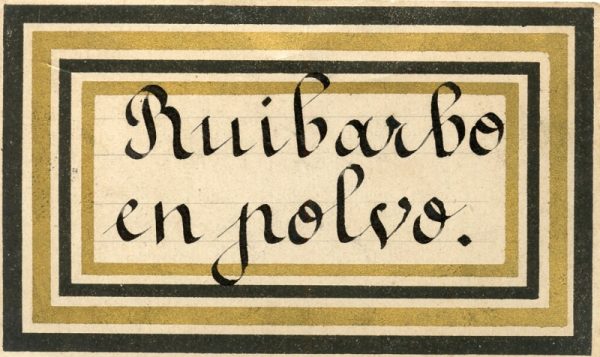 Ruibarbo
en polvo.